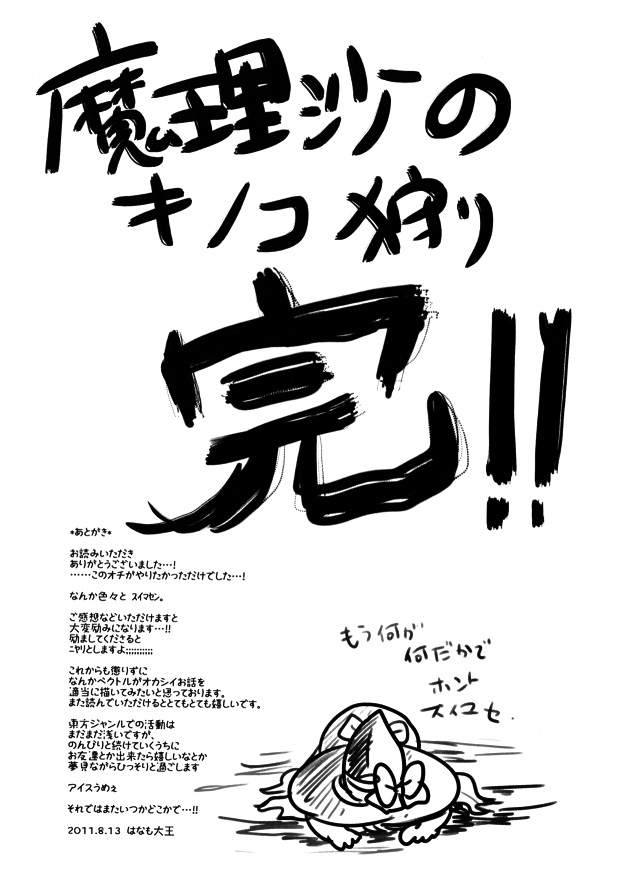 魔理沙の
キノコ狩り
完!!
*あとがき*
お読みいただき
ありがとうございました…!
……このオチがやりたかっただけでした…!
なんか色々と スイマセン。
ご感想などいただけますと
大変励みになります…!!
励ましてくださると
ニヤリとしますよ;;;;;;;;;;
これからも懲りずに
なんかベクトルがオカシイお話を
適当に描いてみたいと思っております。
また読んでいただけるととてもとても嬉しいです。
東方ジャンルでの活動は
まだまだ浅いですが、
のんびりと続けていくうちに
お友達とか出来たら嬉しいなとか
夢見ながらひっそりと過ごします
アイスうめぇ
それではまたいつかどこかで…!!
2011.8.13 はなも大王
もう何が
何だかで
ホント
スイマセ.